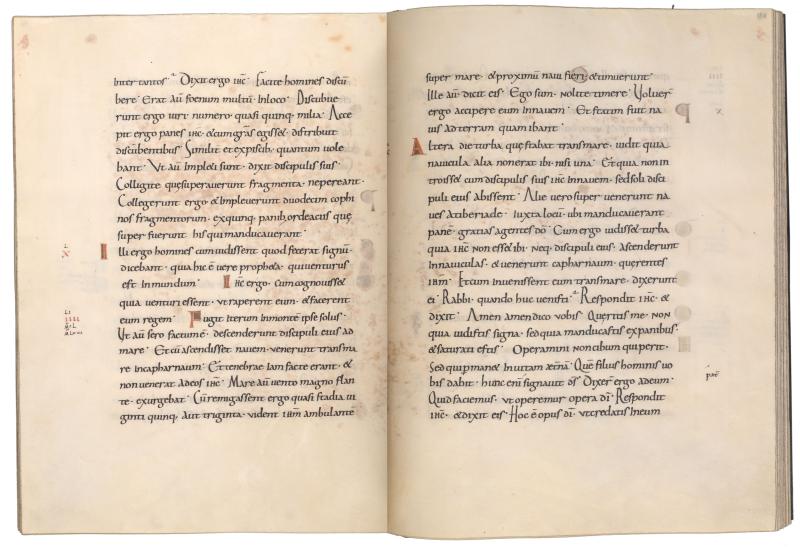 inter tantos · Dixit ergo ihc̄ · Facite homines discū
bere · Erat aū foenum multū · in loco · Discubue
runt ergo viri numero · quasi quinq; milia · Acce
pit ergo panes ihc̄ · & cum gr̄as egiss& · distribuit
discūbentibus · Similit̄ et ex piscib; quantum uole
bant · Vt aū implęti sunt · dixit discipulis suis ·
Colligite quę superauerunt fragmenta · ne pereant ·
Collegerunt ergo · & impleuerunt duodecim cophi
nos fragmentorum · ex quinq; panib; ordeaciis quę
super fuerunt his qui manducauerant ·
L
X
Illi ergo homines cum uidissent quod fecerat signū ·
dicebant · quia hic ē vere propheta · qui venturus
est in mundum · Ihc̄ ergo · cum cognouiss&
quia venturi essent · vt raperent eum · & facerent
LI
IIII
eum regem · Fugit iterum in monte ipse solus ·
Vt aū sero factum ē · descenderunt discipuli eius ad
mare · Et cū ascendisset nauem · venerunt transma
re in capharnaum · Et tenebrae iam factę erant · &
non venerat ad eos ihc̄ · Mare aū vento magno flan
te · exurgebat · Cū remigassent ergo quasi stadia ui
ginti quinq; aut triginta · vident ihm̄ ambulante
super mare · & proximū naui fieri · & timuerunt ·
Ille aū dicit eis · Ego sum · nolite timere · Voluer̄
ergo accipere eum in nauem · Et statim fuit na
uis ad terram quam ibant ·
X
Altera die turba quę stabat trans mare · uidit quia
nauicula alia non erat ibi · nisi una · Et quia non in
troiss& cum discipulis suis ihc̄ in nauem · sed soli disci
puli eius abissent · Alię vero super venerunt na
ues a tiberiade · iuxta locū · ubi manducauerant
panē · gratias agentes dn̄o · Cum ergo uidiss& turba
quia ihc̄ non ess& ibi · neq; discipuli eius · ascenderunt
in nauiculas · & venerunt capharnaum · querentes
ihm̄ · Et cum inuenissent eum trans mare · dixerunt
ei · Rabbi · quando huc venisti · Respondit ihc̄ · &
dixit · Amen amen dico vobis · Queritis me · non
quia uidistis signa · sed quia manducastis ex panibus ·
& saturati estis · Operamini non cibum qui perit ·
Sed qui p̄man& in uitam ęt̄nā · Quē filius hominis vo
bis dabit · hunc eni signauit ds̄ · Dixer̄ ergo ad eum ·
Quid faciemus · vt operemur opera dī · Respondit
ihc̄ · & dixit eis · Hoc ē opus dī · vt credatis in eum